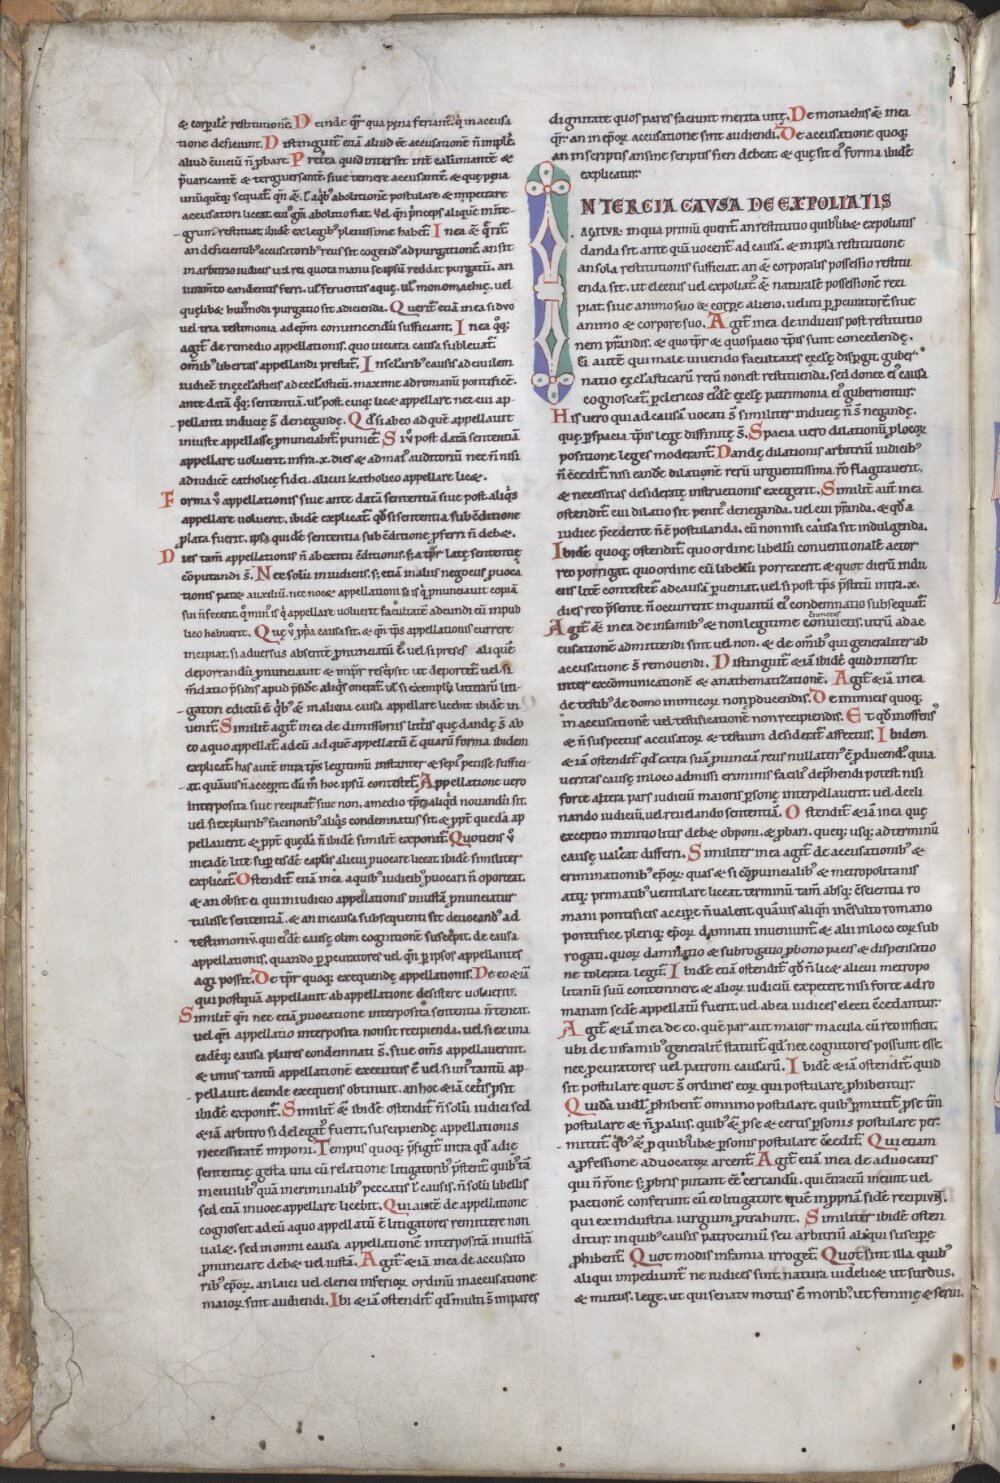 & corporale restitutione. Deinde qr̄ qua pena feriant̄. q̇ in accusa
tione defitiunt. Distinguit̄ etiā aliud ēē accusatione n̄ implē.
aliud c̄uiciū n̄ ꝓbare. Pret̄ea quid intersit int̄ calūmiantē &
p̄uaricantē & tergiversantē. siue temere accusantē. & quę pęna
accusatori liceat. eiꝰ q̄n abolitio fiat. Vel q̄n p̄nceps aliquē inte-
grum restituat. ibidē ex legibꝰ plenissime habet̄. In ea & q̄rit̄
an deficientibꝰ accusatoribꝰ reus sit cogendꝰ ad purgationē. an sit
in arbitrio iudicis uel rei quota manu se ipsū reddat purgatū. an
iuram̄to candentis ferri. ul̄ feruentis aquę. ul̄ monomachię. uel
quęlibꝰ huiꝰmodi purgatio sit adicienda. Querit̄ etiā in ea si duo
uel tria testimonia ad ep̄m conuincendū sufficiant. In ea q̊q;
agit̄ de remedio appellationis. quo uiciata causa subleuat̄.
om̄ibꝰ libertas appellandi prestat̄. In sęl̄aribꝰ causis ad ciuilem
iudicē in ęccl̄asticis ad ęccl̄asticū. maxime ad romanū pontificē.
ante datā q̊q; sententiā. ul̄ post. cuiq; licꝫ appellare. nec cui ap-
pellanti inducię s̄ denegandę. Qd̄ si ab eo ad quē appellauit
iniuste appellasse ꝓnunciabit̄. puniet̄. Si v̊ post datā sententiā
appellare uoluerit. infra .x. dies & ad maiꝰ auditoriū nec n̄ nisi
ad iudicē catholicę fidei. alicui katholico appellare licꝫ.
Forma v̊ appellationis siue ante datā sententiā siue post aliq̇s
appellare uoluerit. ibidē explicat̄. qd̄ si sententia sub c̄ditione
plata fuerit. ipsa quidē sententia sub c̄ditione ꝓferri n̄ debꝫ.
Dies tam̄ appellationis n̄ ab euentu c̄ditionis. sꝫ a tp̄r latę sententię
cōputandi s̄. Nec solū in iudiciis. sꝫ etiā in aliis negociis ꝓuoca
tionis patꝫ auxiliū. nec nocꝫ appellationi si is q̇ ꝓnunciauit copiā
sui n̄ fecerit. q̊minꝰ is q̇ appellare uoluerit facultatē adeundi eū in pub
lico habuerit. Quę v̊ ꝓp̄a causa sit. & q̄n tp̄s appellationis currere
incipiat. si aduersus absentē ꝓnunciatū ē. uel si preses aliquē
deportandū ꝓnunciauit & imꝑr̄ rescp̄sit ut deportet̄. uel si
m̄datio p̄sidis apud p̄sidē aliq̇s oneraꝰ. ul̄ si exemplū litterarū liti-
gatori edictū ē. q̇bꝰ & in aliena causa appellare licebit. ibidē in
uenit̄. Similit̄ agit̄ in ea de dimissoriis litt̄is quę dandę s̄ ab
eo a quo appellat̄. ad eū ad quē appellatū ē. quarū forma ibidem
explicat̄. has autē intra tp̄s legitimū instanter & sepiꝰ petisse suffici-
at. quāuis n̄ acceꝑit. dūm̊ hoc ipsū contestet̄. Appellatione uero
interposita siue recipiat̄ siue non. a medio tp̄r aliq̇d nouandū sit.
uel si ex pluribꝰ facinoribꝰ aliq̇s condemnatus sit & ꝓpt̄ quędā ap
pellauerit & ꝓpt̄ quędā n̄ ibidē similit̄ exponit̄. Quotiens v̊
in eadē lite sup̄ eisdē cap̄lis alicui ꝓuocare liceat. ibidē similiter
explicat̄. Ostendit̄ etiā in ea a quibꝰ iudicibꝰ ꝓuocari n̄ oporteat.
& an obsit ei qui in iudicio appellationis iniustā ꝓnunciat̄
tulisse sententiā. & an in causa subsequenti sit deuocandꝰ ad
testimoniū. qui eidē causę olim cognitionē susceꝑit. de causa
appellationis. quando ꝑ ꝓcuratores uel q̄n ꝑ ipsos appellantes
agi possit. De tp̄r quoq; exequendę appellationis. De eo &iā
qui postquā appellauit ab appellatione desistere uoluerit.
Similit̄ q̄n nec etiā ꝓuocatione interposita sententia n̄ teneat.
uel q̄n appellatio interposita non sit recipienda. uel si ex una
eadēq; causa plures condemnati s̄. siue om̄s appellauerint.
& unus tantū appellationē executus ē uel si unꝰ tantū ap-
pellauit. deinde exequens obtinuit. an hoc &iā cet̄is ꝓsit
ibidē exponit̄. Similit̄ & ibidē ostendit̄ n̄ solū iudici sed
&iā arbitro si delegatꝰ fuerit. suscipiendę appellationis
necessitatē imponi. Tempus quoq; p̄figit̄ intra qd̄ a die
sententię gesta una cū relatione litigatoribꝰ p̄stent̄. quibꝰ tā
in ciuilibꝰ quā in criminalibꝰ peccatis ł causis. n̄ solū libellis
sed etiā in uoce appellare licebit. Qui autē de appellatione
cognoscit. ad eū a quo appellatū ē litigatores remittere non
ualꝫ. sed in omni causa appellationē interpositā iniustā
ꝓnunciare debꝫ uel iustā. Agit̄ &iā in ea de accusato
ribꝰ ep̄oꝝ. an laici uel clerici inferioꝝ ordinū in accusatione
maioꝝ sint audiendi. Ibi &iā ostendit̄ qd̄ multi s̄ impares
dignitate quos pares faciunt merita uitę. De monachis & in ea
qr̄. an in ep̄oꝝ accusatione sint audiendi. De accusatione quoq;
an in scriptis an sine scriptis fieri debeat. & quę sit eiꝰ forma ibidē
explicatur.
IN TERCIA CAVSA DE EXPOLIATIS
AGITVR. in qua primū querit̄. an restitutio quibꝰlibꝫ expoliatis
danda sit. ante quā uocent̄ ad causā. & in ipsa restitutione
an sola restitutionis sufficiat. an & corporalis possessio restitu
enda sit. ut electus uel expoliatꝰ. & naturalē possessionē reci
piat. siue animo suo & corꝑe alieno. ueluti ꝑ ꝓcuratorē siue
animo & corpore suo. Agit̄ in ea de induciis post restitutio
nem p̄standis. & quo tp̄r & quo spacio tp̄is sunt concedendę.
Ei autē qui male uiuendo facultates ęccl̄ę disꝑgit. guber
natio ęccl̄asticarū rerū non est restituenda. sed donec eiꝰ causa
cognoscat̄. ꝑ clericos eidē ęccl̄ę patrimonia eiꝰ gubernentur.
His uero qui ad causā uocati s̄ similiter inducię n̄ s̄ negandę.
quę ꝑ spacia tp̄is lege diffinitę s̄. Spacia uero dilationū ꝓ locoꝝ
positione leges moderant̄. Dandę dilationis arbitriū iudicibꝰ
n̄ c̄cedit̄. nisi eandē dilationē rerū urgentissima r̄o flagitauerit.
& necessitas desideratę instructionis exegerit. Similit̄ aut̄ in ea
ostendit̄. cui dilatio sit penitꝰ deneganda. uel cui p̄standa. & qd̄ a
iudice p̄cedente n̄ ē postulanda. cū non nisi causa sit indulgenda.
Ibidē quoq; ostendit̄. quo ordine libellū conuentionalē actor
reo porrigat. quo ordine eū libellū porrexerit. & quot dierū indu
ciis litē contestet̄. ad causā ꝑueniat. uel si post tp̄s p̄stitū intra .x.
dies reo p̄sente n̄ occurrerit in quantū eiꝰ condemnatio subsequat̄.
Agit̄ & in ea de infamibꝰ & non legitime coniunctis. utrū ad ac
cusationē admittendi sint uel non. & de om̄ibꝰ qui generaliter ab
accusatione s̄ remouendi. Distinguit̄ &iā ibidē quid intersit
inter excōmunicationē & anathematizationē. Agit̄ &iā in ea
de testibꝰ de domo inimicoꝝ non ꝓducendis. De inimicis quoq;
in accusationē uel testificationē non recipiendis. Et qd̄ inoffensꝰ
& n̄ suspectus accusatoꝝ & testium desiderat̄ affectus. Ibidem
&iā ostendit̄ qd̄ extra suā ꝓuinciā reus nullatenꝰ ē ꝓducendꝰ. quia
ueritas causę in loco admissi criminis faciliꝰ dep̄hendi potest. nisi
forte altera pars iudiciū maioris ꝑsonę interpellauerit. uel decli
nando iudiciū. uel reuelando sententiā. Ostendit̄ &iā in ea quę
exceptio in initio litis debꝫ obponi. & ꝓbari. queq; usq; ad terminū
causę ualeat differri. Similiter in ea agit̄ de accusationibꝰ &
criminationibꝰ ep̄oꝝ. quas & si cōꝓuincialibꝰ & metropolitanis
atq; primatibꝰ uentilare liceat. terminū tam̄ absq; c̄scientia ro
mani pontificis acciꝑe n̄ ualent. quāuis aliqn̄ in c̄sulto romano
pontifice. pleriq; ep̄oꝝ damnati inueniunt̄. & alii in loco eoꝝ sub
rogati. quoꝝ damnatio & subrogatio ꝓ bono pacis & dispensatio
ne tolerata legit̄. Ibidē etiā ostendit̄ qd̄ n̄ licꝫ alicui metropo
litanū suū contemnere. & alioꝝ iudiciū expetere. nisi forte ad ro
manam sedē appellatū fuerit. uel ab ea iudices electi c̄cedantur.
Agit̄ &iā in ea de eo. quem par aut maior macula cū reo inficit.
ubi de infamibꝰ generalit̄ statuit̄. qd̄ nec cognitores possunt esse.
nec ꝓcuratores uel patroni causarū. Ibidē &iā ostendit̄. quid
sit postulare quot s̄ ordines eoꝝ qui postulare ꝓhibentur.
Quidā uidl̄ ꝓhibent̄ omnino postulare. quibꝰ ꝑmittit̄ ꝓ se tm̄
postulare & n̄ ꝓ aliis. quibꝰ & ꝓ se & certis ꝑsonis postulare ꝑer-
mittit̄. q̇bꝰ & ꝓ quibꝰlibꝫ ꝑsonis postulare c̄cedit̄. Qui etiam
a ꝓfessione aduocatoꝝ arcent̄. Agit̄ etiā in ea de aduocatis
qui n̄ r̄one sꝫ ꝓbris putant eē certandū. qui c̄tractū ineunt uel
pactionē conferunt cū eo litigatore quē in ꝓpriā fidē recipiūt.
qui ex industria iurgium ꝓtrahunt. Similiter ibidē osten
ditur. in quibꝰ causis patrociniū seu arbitriū aliqui susciꝑe
ꝓhibent̄. Quot modis infamia irroget̄. Quot sint illa quibꝰ
aliqui impediunt̄ ne iudices sint. natura uidelicꝫ ut surdus.
& mutus. lege. ut qui senatu motus ē. moribꝰ. ut feminę & serui.